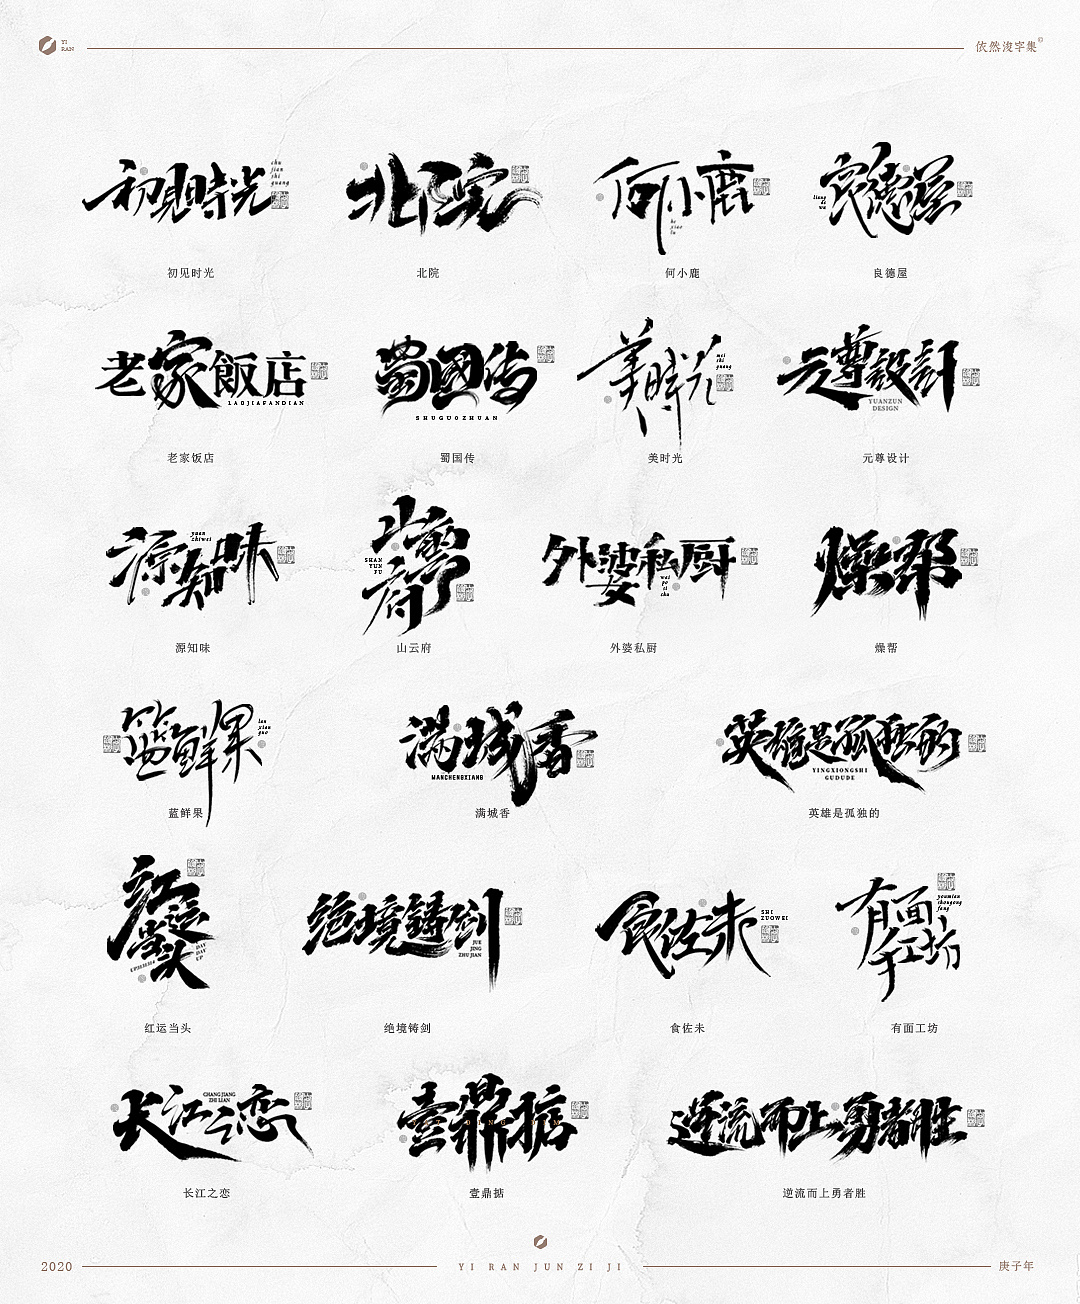 YI
RAN
依然浚字集
初見時光
chu
jian
shi
guang
初见时光
北院
北院
何小鹿
he
xiao
lu
何小鹿
良德屋
liang
de
wu
良德屋
老家飯店
LAOJIAFANDIAN
老家饭店
蜀國传
SHUGUOZHUAN
蜀国传
美時光
mei
shi
guang
美时光
元尊設計
YUANZUN
DESIGN
元尊设计
源知味
yuan
zhiwei
源知味
山雲府
SHAN
YUN
FU
山云府
外婆私厨
wai
po
si
chu
外婆私厨
燥帮
燥帮
篮鲜果
lan
xian
guo
蓝鲜果
满城香
MANCHENGXIANG
满城香
英雄是孤独的
YINGXIONGSHI
GUDUDE
英雄是孤独的
红运当头
DAY
DAY
UP
红运当头
绝境铸剑
JUE
JING
ZHU JIAN
绝境铸剑
食佐未
SHI
ZUOWEI
食佐未
有面手工坊
youmian
shougong
fang
有面工坊
长江之恋
CHANG JIANG
ZHI LIAN
长江之恋
壹鼎掂
壹鼎掂
逆流而上勇者胜
逆流而上勇者胜
2020
YI RAN JUN ZI JI
庚子年